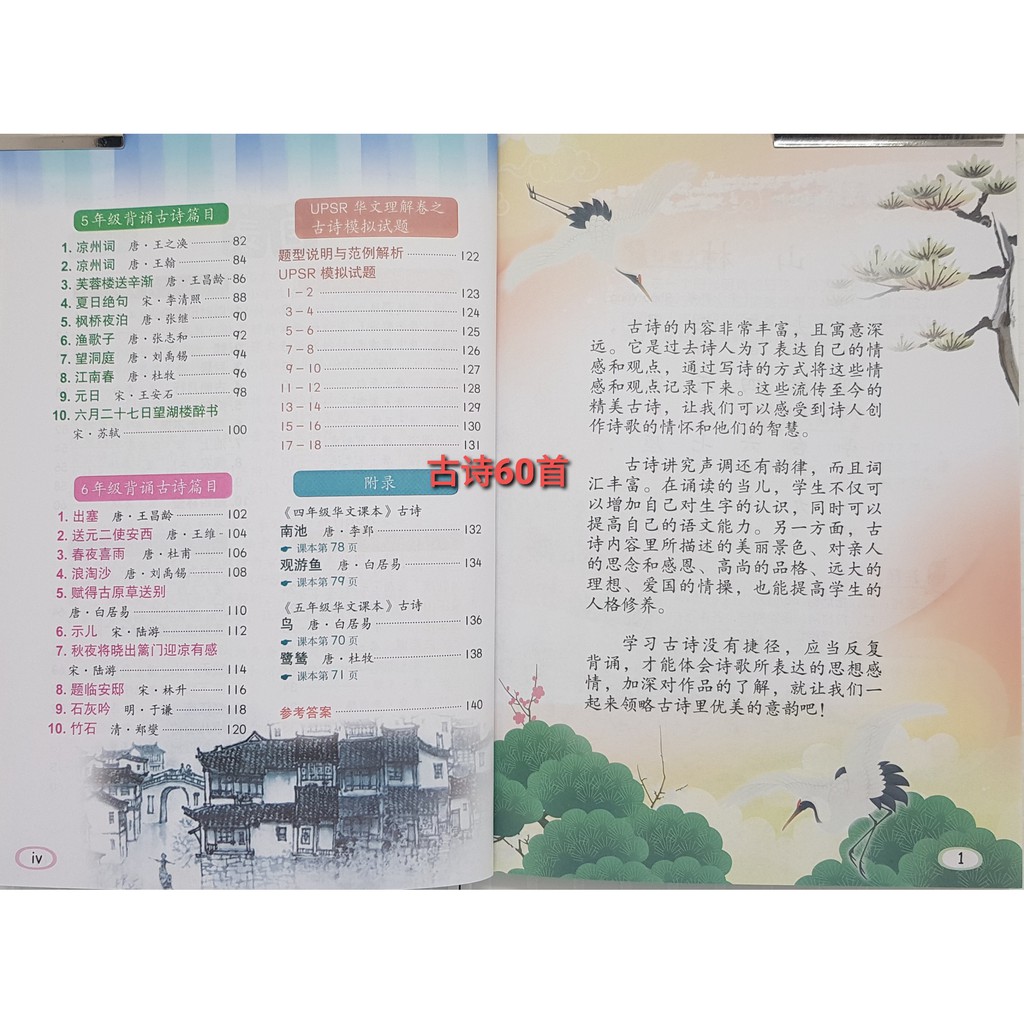 5年级背诵古诗篇目
1. 凉州词 唐·王之涣 82
2. 凉州词 唐·王翰 84
3. 芙蓉楼送辛渐 唐·王昌龄 86
4. 夏日绝句 宋·李清照 88
5. 枫桥夜泊 唐·张继 90
6. 渔歌子 唐·张志和 92
7. 望洞庭 唐·刘禹锡 94
8. 江南春 唐·杜牧 96
9. 元日 宋·王安石 98
10. 六月二十七日望湖楼醉书
宋·苏轼 100
6年级背诵古诗篇目
1. 出塞 唐·王昌龄 102
2. 送元二使安西 唐·王维 104
3. 春夜喜雨 唐·杜甫 106
4. 浪淘沙 唐·刘禹锡 108
5. 赋得古原草送别
唐·白居易 110
6. 示儿 宋·陆游 112
7. 秋夜将晓出篱门迎凉有感
宋·陆游 114
8. 题临安邸 宋·林升 116
9. 石灰吟 明·于谦 118
10. 竹石 清·郑燮 120
UPSR 华文理解卷之
古诗模拟试题
题型说明与范例解析 122
UPSR 模拟试题
1-2 123
3-4 124
5-6 125
7-8 126
9-10 127
11-12 128
13-14 129
15-16 130
17-18 131
附录
《四年级华文课本》古诗
南池 唐·李郢 132
课本第78页
观游鱼 唐·白居易 134
课本第79页
《五年级华文课本》古诗
鸟 唐·白居易 136
课本第70页
鹭鸶 唐·杜牧 138
课本第71页
参考答案 140
iv
古诗60首
古诗的内容非常丰富，且寓意深
远。它是过去诗人为了表达自己的情
感和观点，通过写诗的方式将这些情
感和观点记录下来。这些流传至今的
精美古诗，让我们可以感受到诗人创
作诗歌的情怀和他们的智慧。
古诗讲究声调还有韵律，而且词
汇丰富。在诵读的当儿，学生不仅可
以增加自己对生字的认识，同时可以
提高自己的语文能力。另一方面，古
诗内容里所描述的美丽景色、对亲人
的思念和感恩、高尚的品格、远大的
理想、爱国的情操，也能提高学生的
人格修养。
学习古诗没有捷径，应当反复
背诵，才能体会诗歌所表达的思想感
情，加深对作品的了解，就让我们一
起来领略古诗里优美的意韵吧！
1